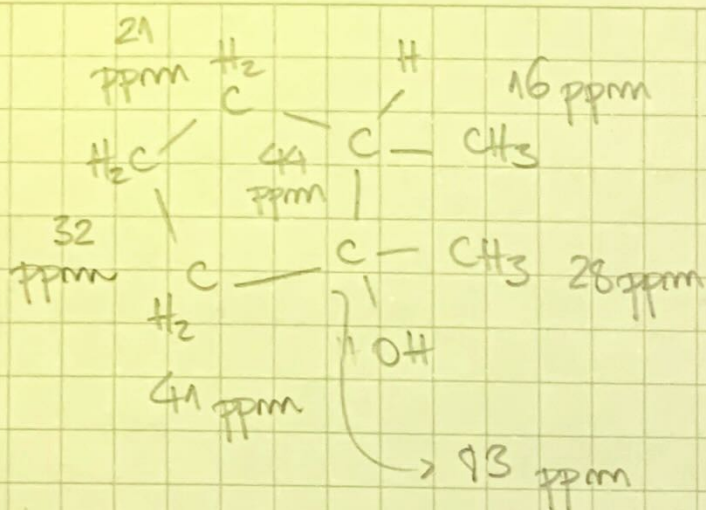 21
ppm
H₂
C
H
16 ppm
H₂C
44
ppm
C — CH₃
32
ppm
C
H₂
C — CH₃
28 ppm
OH
41 ppm
ppm